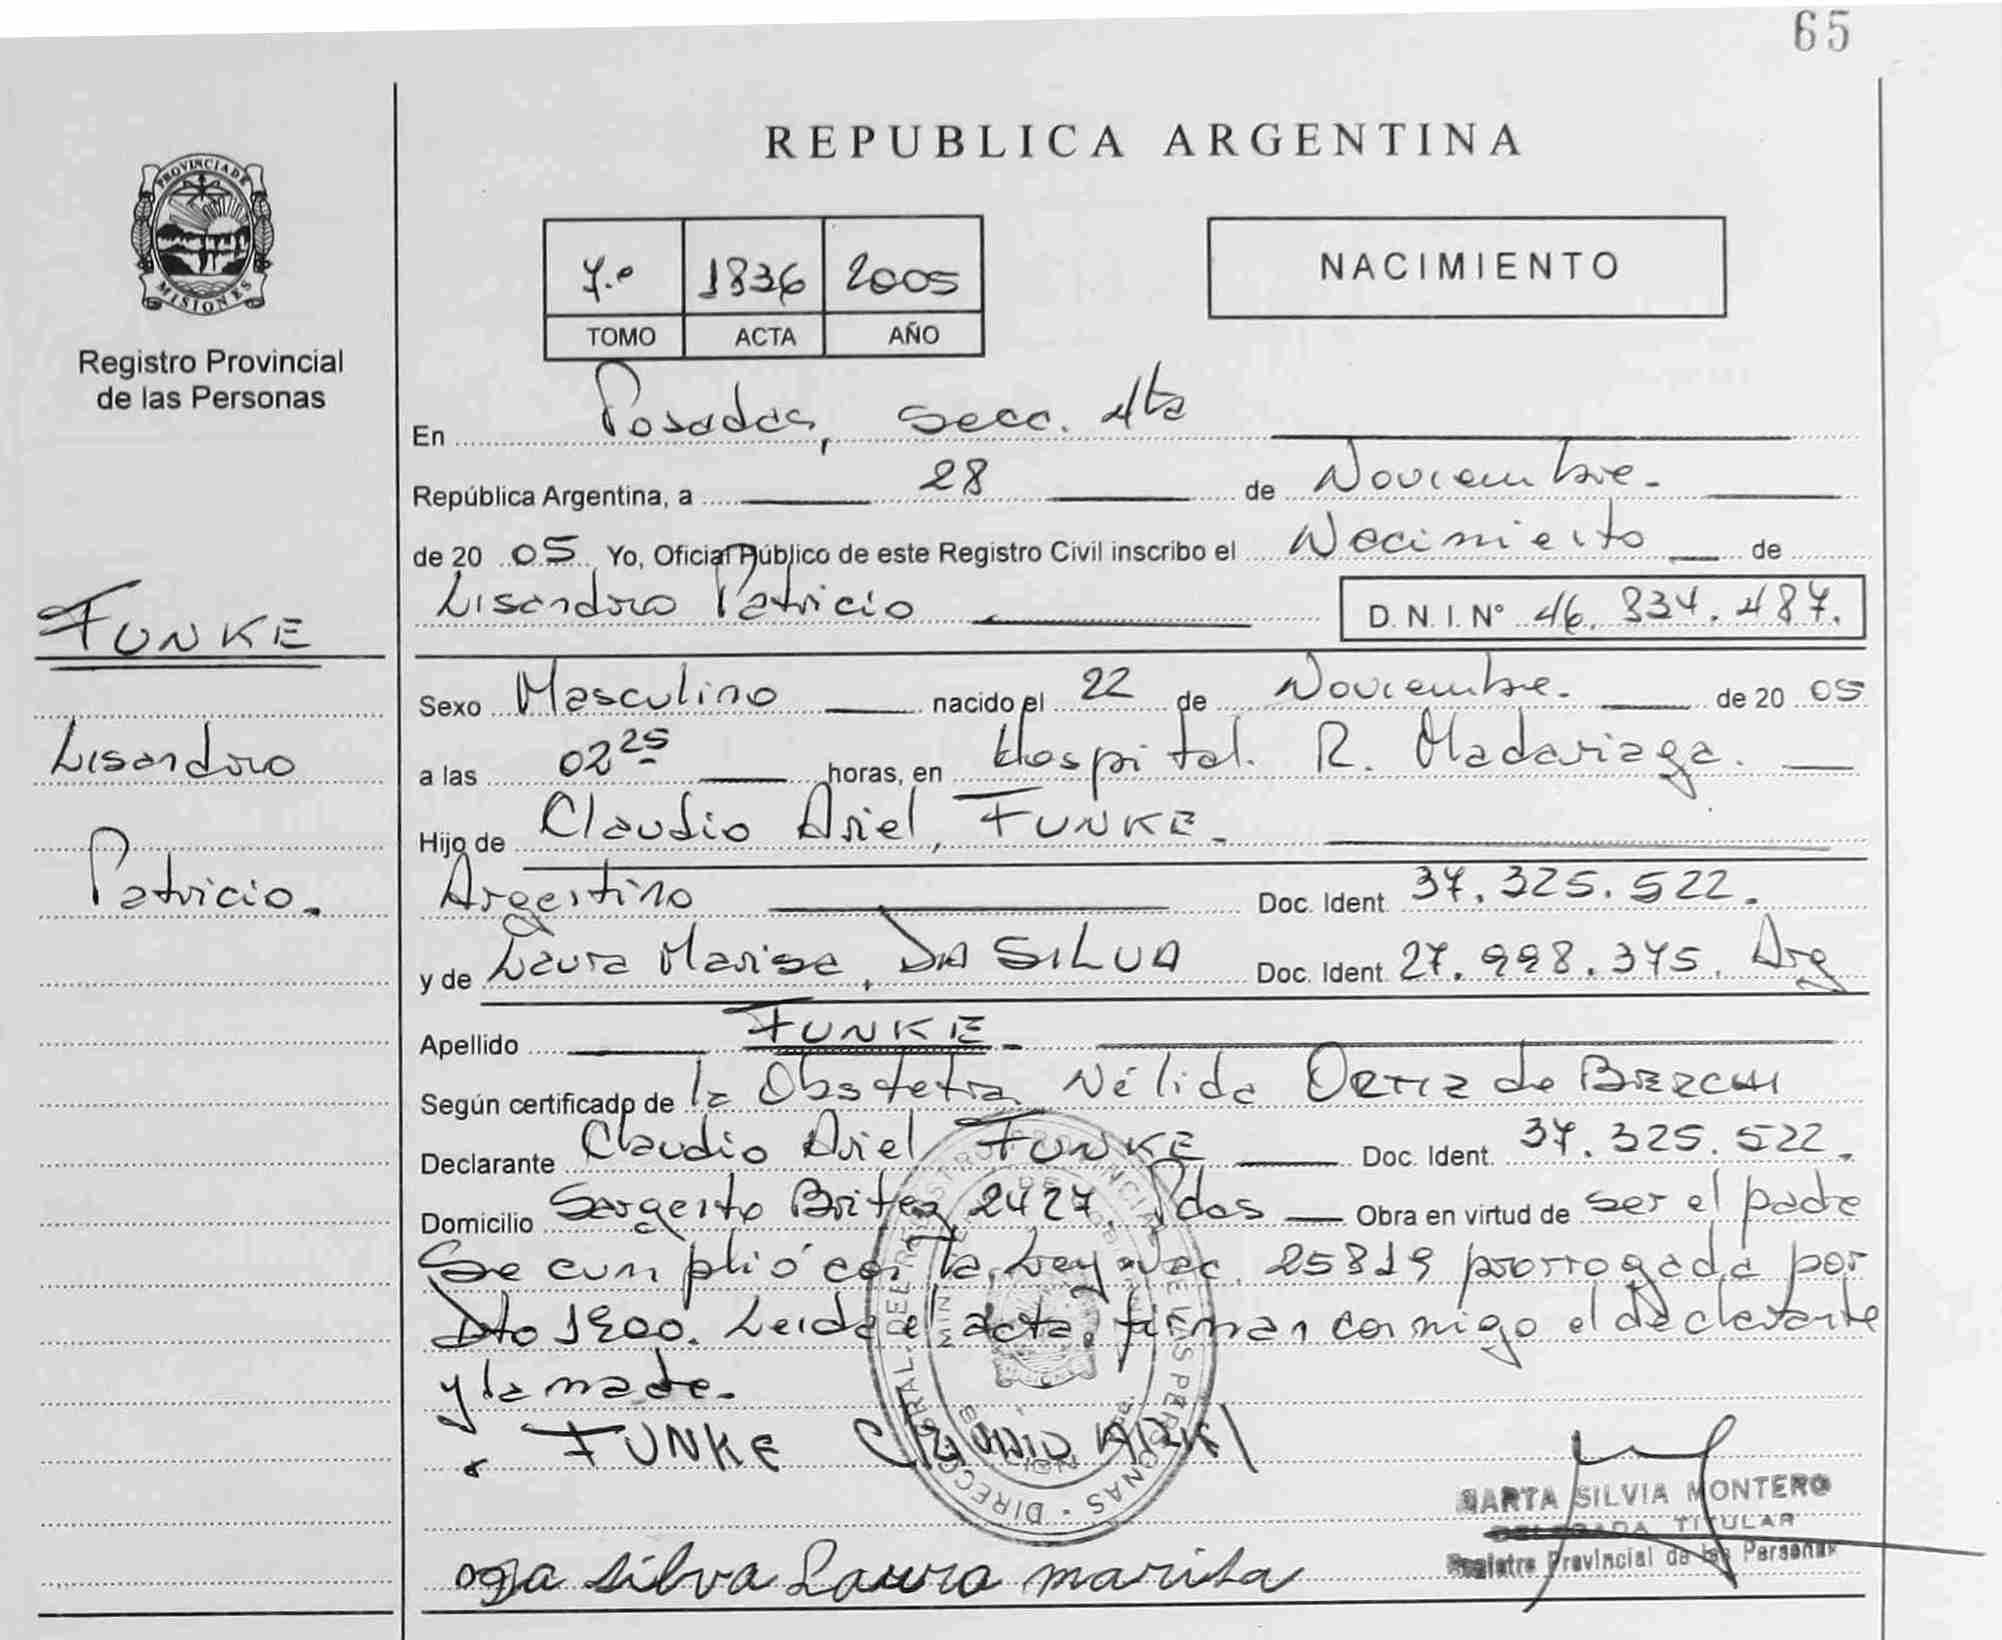 65
REPUBLICA ARGENTINA
PROVINCIA DE
MISIONES
Registro Provincial
de las Personas
7.º 1836 2005
TOMO ACTA AÑO
NACIMIENTO
En Posadas, Secc. 4ta
República Argentina, a 28 de Noviembre.
de 20 05 Yo, Oficial Público de este Registro Civil inscribo el Nacimiento de
Lisandro Patricio D. N. I. N° 46. 834. 487.
FUNKE
Lisandro
Patricio.
Sexo Masculino nacido el 22 de Noviembre. de 20 05
a las 02 25 horas, en Hospital. R. Madariaga.
Hijo de Claudio Ariel, FUNKE.
Argentino Doc. Ident. 37. 325. 522.
y de Laura Marisa, DA SILVA Doc. Ident. 27. 998. 375. Arg
Apellido FUNKE.
Según certificado de la Obstetra Nélida ORTIZ de
Declarante Claudio Ariel FUNKE Doc. Ident. 37. 325. 522.
Domicilio Sargento Britez 2427. Pdas Obra en virtud de ser el padre
Se cumplió con la Ley Nac. 25819 prorrogada por
Dto 1900. Leida el acta, firman conmigo el declarante
y la madre.
FUNKE Claudio Ariel
Silva Laura marisa
MARTA SILVIA MONTERO
DELEGADA TITULAR
Registro Provincial de las Personas